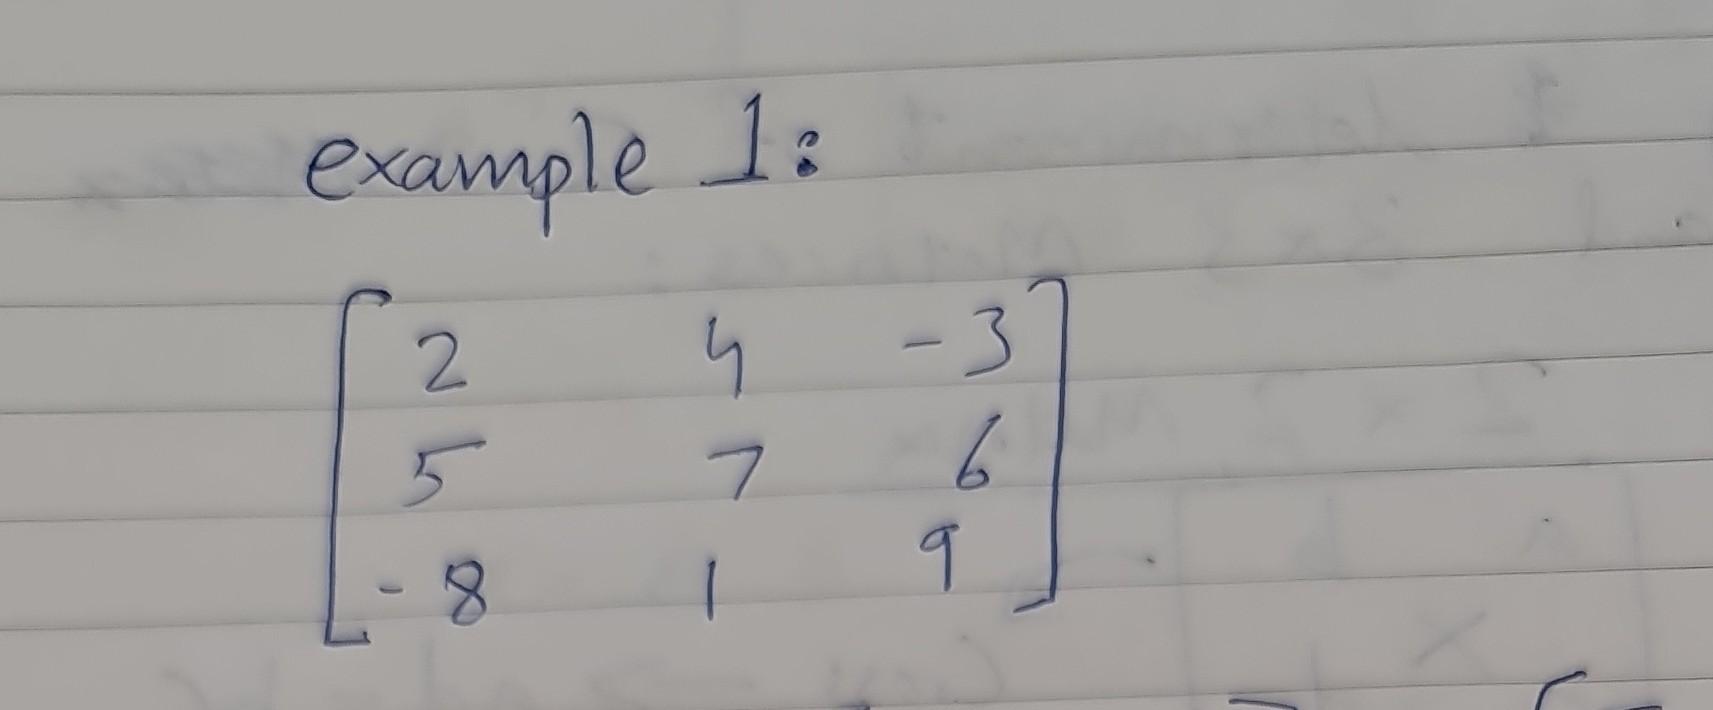 example 1:
2 4 -3
5 7 6
-8 1 9